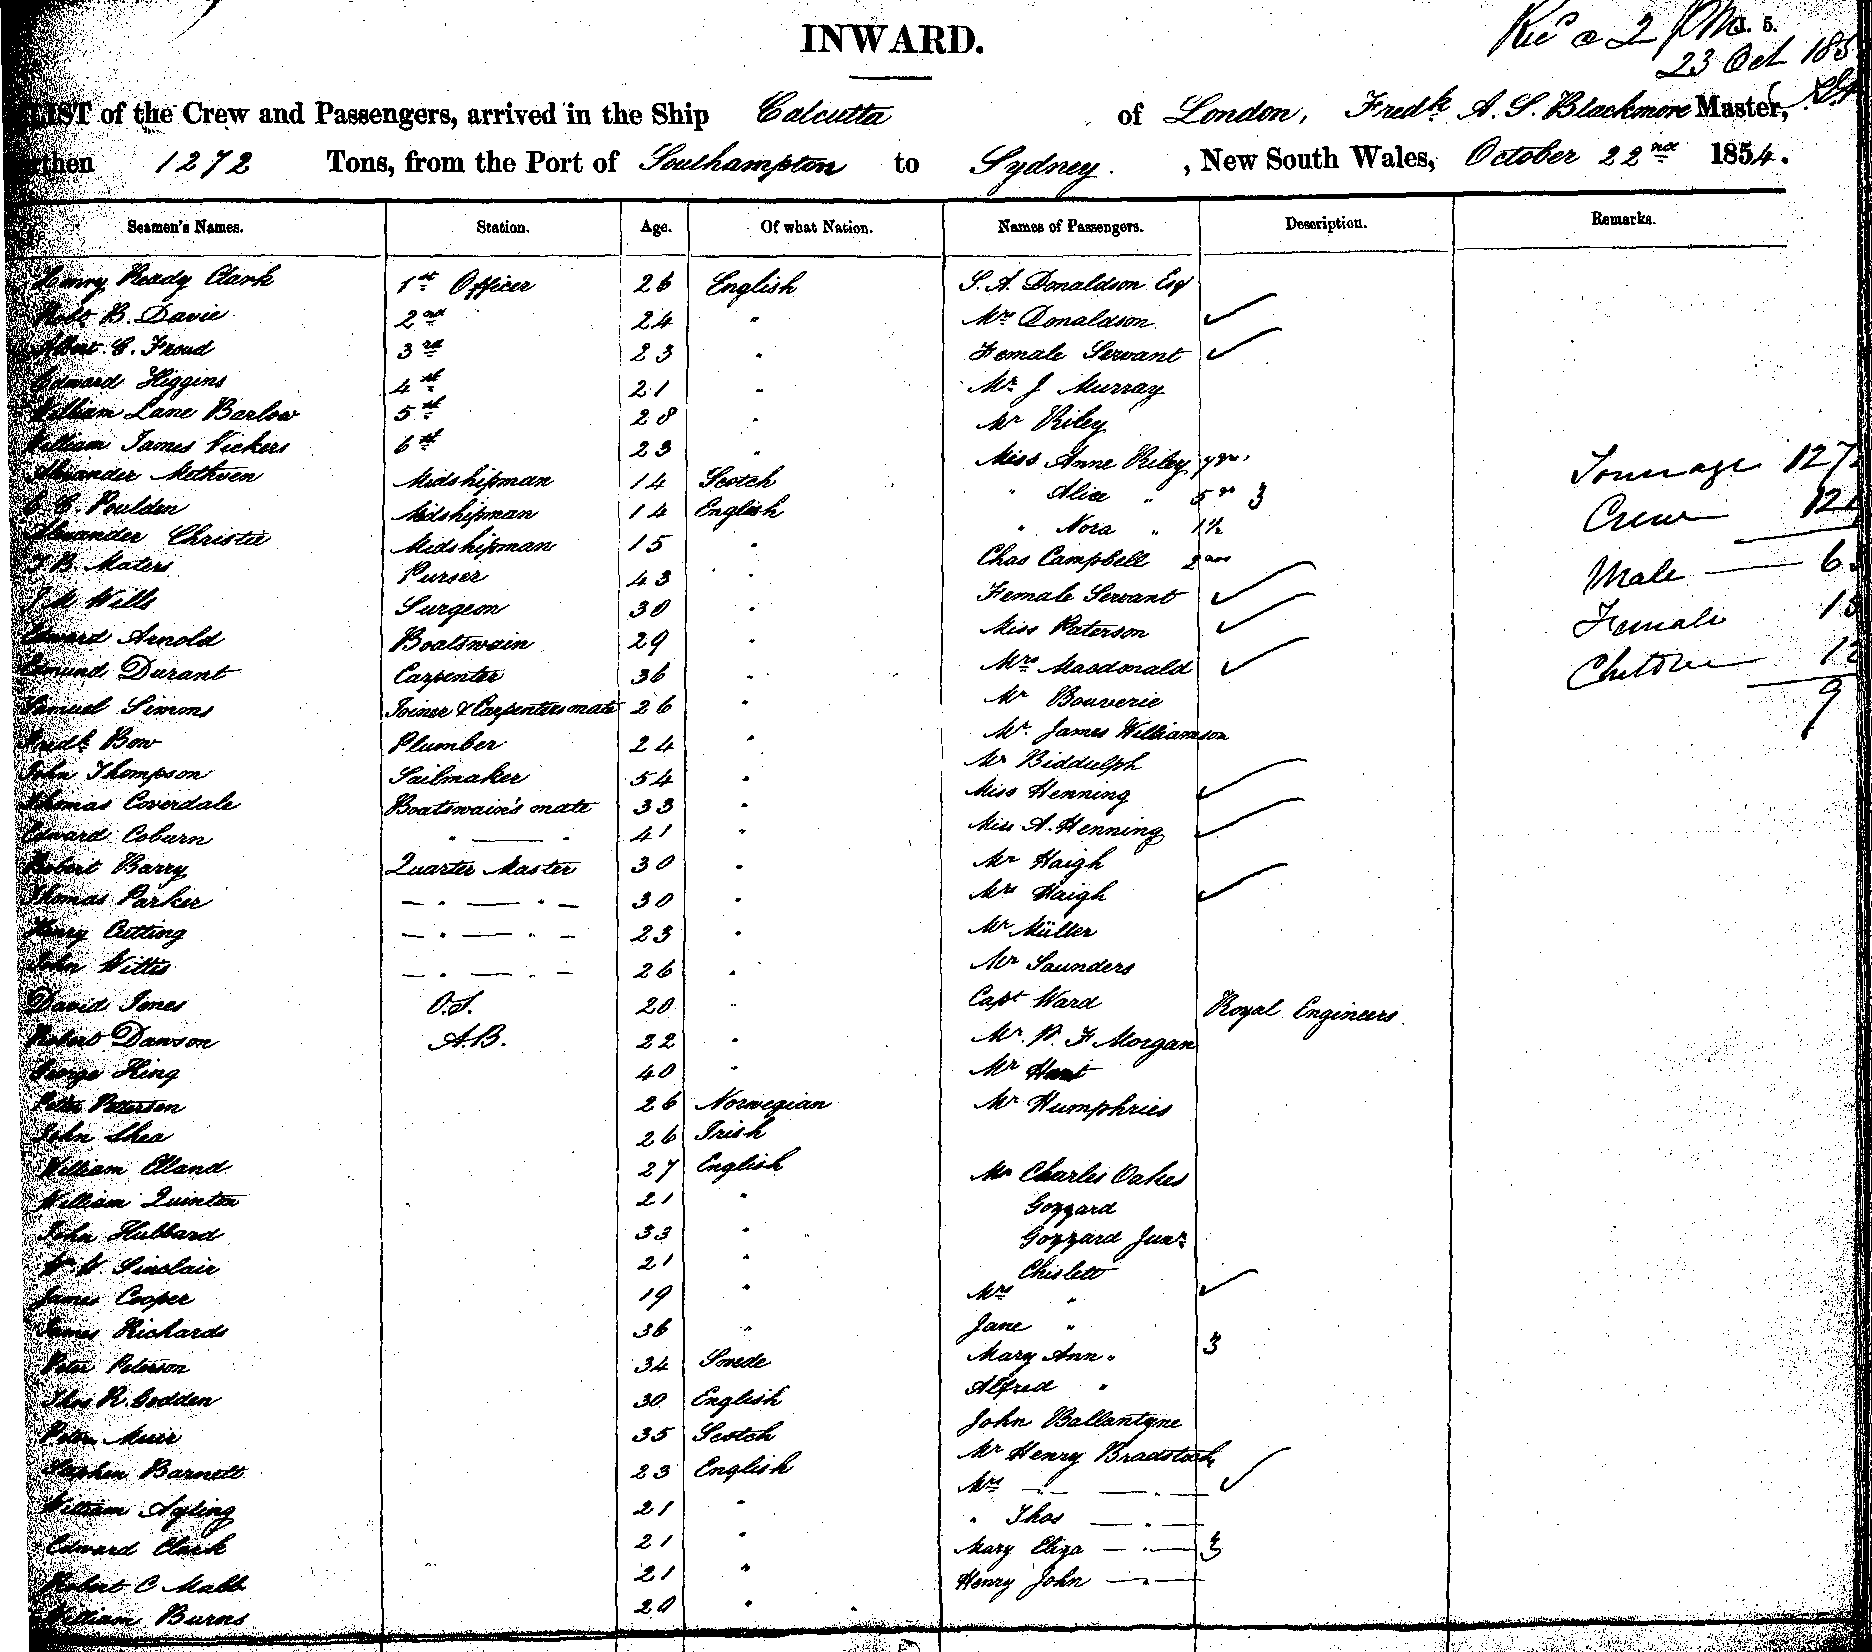 INWARD.
5.
23 Oct 185
LIST of the Crew and Passengers, arrived in the Ship Calcutta of London, Fredk A. S. Blackmore Master,
rthen 1272 Tons, from the Port of Southampton to Sydney. , New South Wales, October 22nd 1854.
Seamen's Names. Station. Age. Of what Nation. Names of Passengers. Description. Remarks.
Henry Ready Clark 1st Officer 26 English S. A. Donaldson Esq
Robt B. Davie 2nd 24 " Mrs Donaldson
Albert C. Froud 3rd 23 " Female Servant
Edward Higgins 4th 21 " Mr J Murray
William Lane Barlow 5th 28 " Mr Riley
William James Vickers 6th 23 " Miss Anne Riley 7 yrs Tonnage 127
Alexander Methven Midshipman 14 Scotch " Alice " 5 yrs 3 Crew 12
C. C. Poulden Midshipman 14 English " Nora " 1½
Alexander Christie Midshipman 15 " Chas Campbell 2 Male 6
T B Maters Purser 43 " Female Servant Female 1
Wills Surgeon 30 " Miss Paterson
Edward Arnold Boatswain 29 " Mrs Macdonald Children 1
Edmund Durant Carpenter 36 " Mr Bouverie 9
Samuel Simons Joiner & Carpenters mate 26 " Mr. James Williamson
Fredk Bow Plumber 24 " Mr Biddulph
John Thompson Sailmaker 54 " Miss Henning
Thomas Coverdale Boatswain's mate 33 " Miss A. Henning
Edward Coburn " — " 41 " Mr Haigh
Robert Barry Quarter Master 30 " Mrs Haigh
Thomas Parker — " — " — 30 " Mr Müller
Henry Cutting — " — " — 23 " Mr Saunders
John Willis — " — " — 26 " Capt Ward Royal Engineers
David Jones O.S. 20 " Mr. W. F Morgan
Robert Dawson A.B. 22 " Mr Hunt
George King 40 " Mr Humphries
Peter Petersen 26 Norwegian
John Shea 26 Irish
William Elland 27 English Mr Charles Oakes
William Quinton 21 " Gozzard
John Hubbard 33 " Gozzard Junr
Wm W. Sinclair 21 " Chislett
James Cooper 19 " Mrs "
James Richards 36 " Jane "
Peter Peterson 34 Swede Mary Ann " 3
Thos R. Godden 30 English Alfred "
Peter Muir 35 Scotch John Ballantyne
Stephen Barnett 23 English Mr Henry Bradstock
William Ayling 21 " Mrs — " —
Edward Clark 21 " " Thos — " —
Robert C Mabb 21 " Mary Eliza — " — 3
William Burns 20 " Henry John — " —